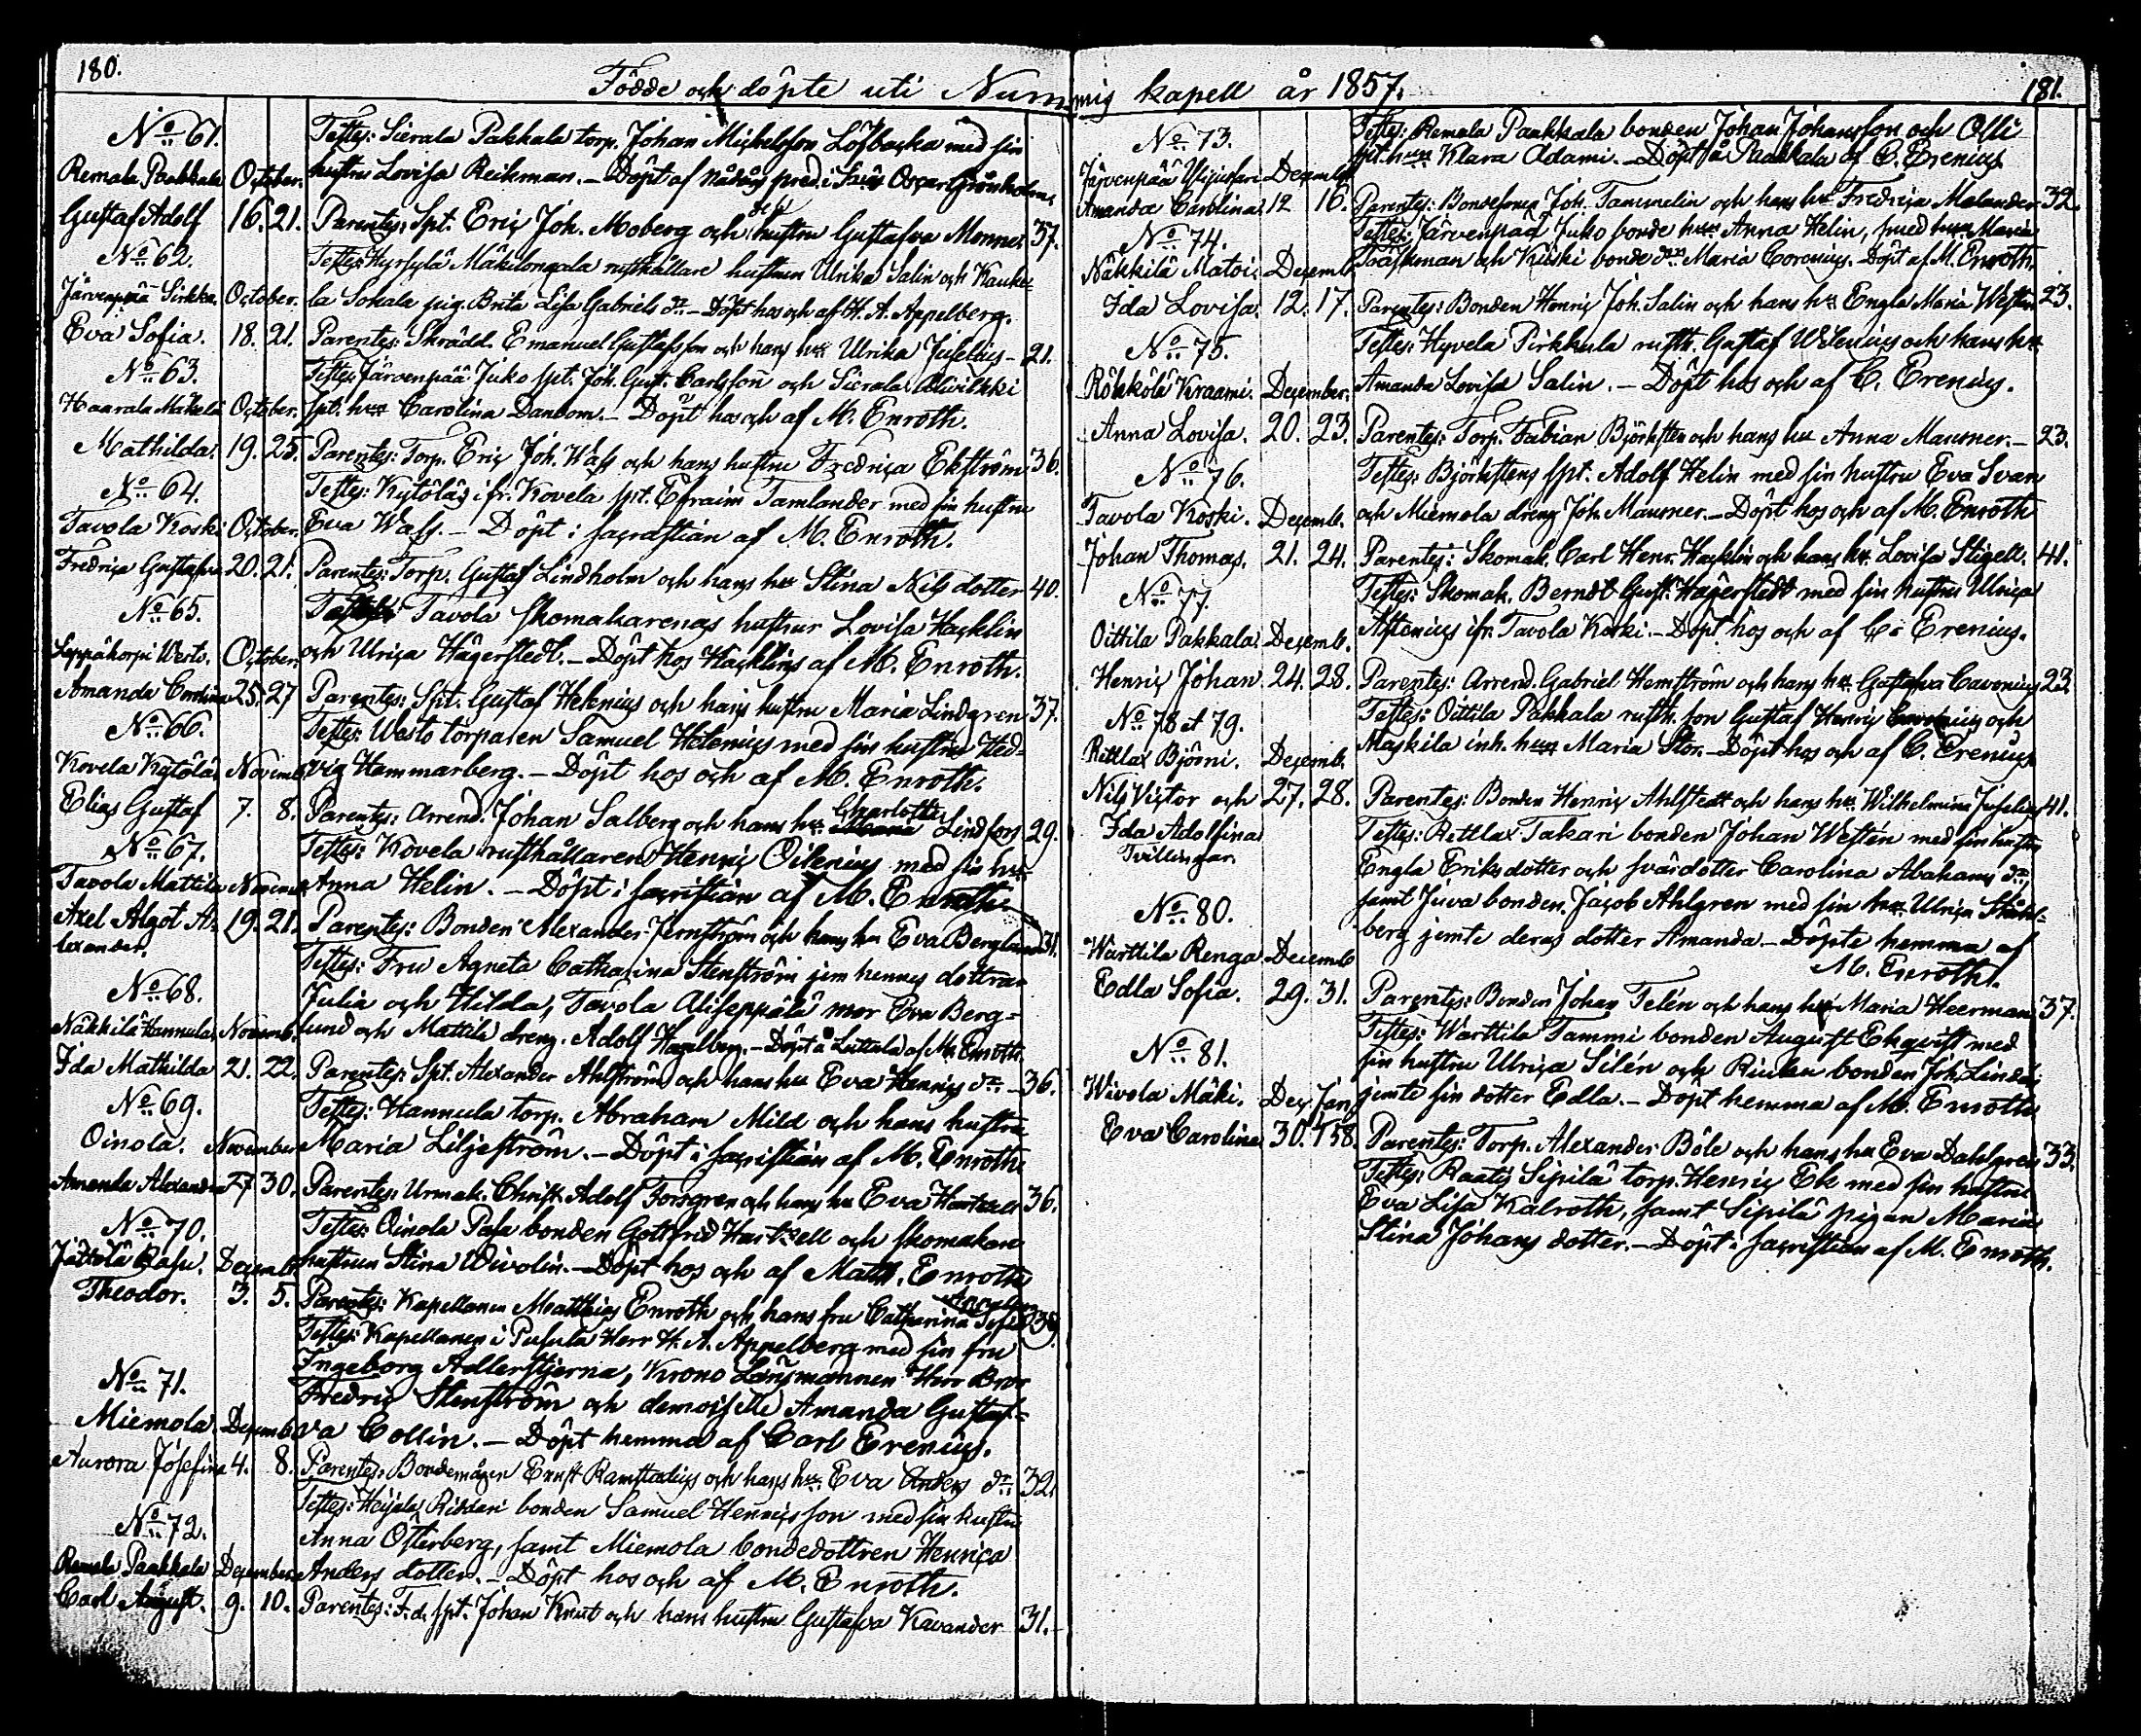 180.
Födde och döpte uti Nummis kapell år 1857.
181.
No 61.
Testes: Sierala Pakkala torp. Johan Michelsson Löfbacka med sin
Remala Paakkala October. hustru Lovisa Reikman. - Döpt af pred. i Oscar Grönholm.
Gustaf Adolf 16. 21. Parentes: Spt. Eric Joh. Moberg och hustru Gustafva Monner 37.
No 62.
Testes: Hyrsylä Mäkilongala rusthållare hustrun Ulrika Salin och Kauke-
Järvenpää Sirkka. October. la Sokala pig. Brita Lisa Gabriels dr. - Döpt hos och af H. A. Appelberg.
Eva Sofia. 18. 21. Parentes: Skrädd. Emanuel Gustafsson och hans hu Ulrika Juselius - 21.
No 63.
Testes: Järvenpää Juko spt. Joh. Gust. Carlsson och Sierala
Haarala Mäkelä October. spt. hu Carolina Dandom. - Döpt hos och af M. Enroth.
Mathilda. 19. 25. Parentes: Torp. Eric Joh. Wass och hans hustru Fredrica Ekström 36.
No 64.
Testes: Kytöläs ifr. Kovela spt. Efraim Tamlander med sin hustru
Tavola Koski October. Eva Wass. - Döpt i sacrastian af M. Enroth.
Fredrica Gustafva 20. 21. Parentes: Torp. Gustaf Lindholm och hans hu Stina Nils dotter 40.
No 65.
Testes: Tavola skomakarenas hustrur Lovisa Hacklin
Leppäkorpi Westo. October. och Ulrica Hägerstedt. - Döpt hos Hacklins af M. Enroth.
Amanda Carolina 25. 27 Parentes: Spt. Gustaf Helenius och hans hustru Maria Lindgren 37.
No 66.
Testes: Westo torparen Samuel Helenius med sin hustru Hed-
Kovela Kytölä. Novemb. vig Hammarberg. - Döpt hos och af M. Enroth.
Elias Gustaf 7. 8. Parentes: Arrend. Johan Salberg och hans hu Charlotta Lindfors 29.
No 67.
Testes: Kovela rusthållaren Henric Oilenius med sin hu
Tavola Mattila Novemb. Anna Helin. - Döpt i sacristian af M. Enroth.
Axel Algot A- 19. 21. Parentes: Bonden Alexander Jernström och hans hu Eva Berglund 31.
lexander.
Testes: Fru Agneta Catharina Stenström jem hennes dottrar
No 68.
Julia och Hilda, Tavola Aliseppälä mor Eva Berg-
Näkkilä Hannula Novemb. lund och Mattila dreng. Adolf Hagelberg. - Döpt å Luttula af M. Enroth.
Ida Mathilda 21. 22. Parentes: Spt. Alexander Ahlström och hans hu Eva Henrics dr. - 36.
No 69.
Testes: Hannula torp. Abraham Mild och hans hustru
Oinola. November Maria Liljeström. - Döpt i sacristian af M. Enroth.
Amanda Alexandra 27. 30. Parentes: Urmak. Christ. Adolf Forsgren och hans hu Eva Hartzell 36.
No 70.
Testes: Oinola Pasu bonden Gottfrid Hartzell och skomakare
Jättölä Pasu. Decemb. hustrun Stina Wivolin. - Döpt hos och af Matth. Enroth
Theodor. 3. 5. Parentes: Kapellanen Matthias Enroth och hans fru Catharina
Testes: Kapellanen i Pusula Herr H. A. Appelberg med sin fru
Ingeborg Adlerstjerna, Krono Länsmannen Herr Bror
No 71.
Fredric Stenström och demoiselle Amanda Gustaf-
Miemola. Decemb. va Collin. - Döpt hemma af Carl Erenius.
Aurora Josefina 4. 8. Parentes: Bondemågen Ernst Ramstadius och hans hu Eva Anders dr. 32.
Testes: bonden Samuel Henricsson med sin hustru
No 72.
Anna Österberg, samt Miemola bondedottren Henrica
Remala Paakkala December. Anders dotter. - Döpt hos och af M. Enroth.
Carl August. 9. 10. Parentes: F.d. spt. Johan Knut och hans hustru Gustafva Kavander 31.
No 73.
Testes: Remala Paakkala bonden Johan Johansson och Olli
spt. hu Klara Adami. - Döpt å Paakkala af C. Erenius.
Järvenpää Decemb.
Amanda Carolina. 12 16. Parentes: Bondesonen Joh. Tammelin och hans hu Fredrica Malander 32.
No 74.
Testes: Järvenpää Juko bonde hu Anna Helin, med hu Maria
Näkkilä Matoi. Decemb. Träskman och Kiiski bonde dr Maria Coronius. Döpt af M. Enroth.
Ida Lovisa. 12. 17. Parentes: Bonden Henric Joh. Salin och hans hu Engla Maria Westen 23.
No 75.
Testes: Hyvela Pirkkula rusth. Gustaf Widenius och hans hu
Röhkölä Kraami. December. Amanda Lovisa Salin. - Döpt hos och af C. Erenius.
Anna Lovisa. 20. 23. Parentes: Torp. Fabian Björksten och hans hu Anna Maurner. - 23.
No 76.
Testes: Björkstens spt. Adolf Helin med sin hustru Eva Svan
Tavola Koski. Decemb. och Miemola dreng Joh. Maurner. - Döpt hos och af M. Enroth
Johan Thomas. 21. 24. Parentes: Skomak. Carl Henr. Hacklin och hans hu Lovisa Stigell. 41.
No 77.
Testes: Skomak. Berndt Gust. Hägerstedt med sin hustru Ulrica
Oittila Pakkala. Decemb. Astenius ifr. Tavola Koski. - Döpt hos och af C. Erenius.
Henric Johan 24. 28. Parentes: Arrend. Gabriel Hemström och hans hu Gustafva Cavonius 23.
No 78 et 79.
Testes: Oittila Pakkala rusth. son Gustaf Henric och
Rettlax Björni. Decemb. Maskila inh. hu Maria Stor. - Döpt hos och af C. Erenius.
Nils Victor och 27. 28. Parentes: Bonden Henric Ahlstedt och hans hu Wilhelmina Juselius 41.
Ida Adolfina
Tvillingar.
Testes: Rettlax Takari bonden Johan Westén med sin hustru
Engla Eriksdotter och svärdotter Carolina Abrahams dr,
No 80.
samt Juva bonden Jacob Ahlgren med sin hu Ulrica Ståhl-
Warttila Renga Decemb berg jemte deras dotter Amanda. - Döpte hemma af
M. Enroth.
Edla Sofia. 29. 31. Parentes: Bonden Johan Telén och hans hu Maria Heerman 37.
Testes: Warttila Tammi bonden August Ekqvist med
No 81.
sin hustru Ulrica Silén och bonden Joh. Lindén
Wivola Mäki. Dec. Jan jemte sin dotter Edla. - Döpt hemma af M. Enroth
Eva Carolina 30. 1 58. Parentes: Torp. Alexander Böle och hans hu Eva Dahlgren 33.
Testes: Raatis Sipilä torp. Henric Ek med sin hustru
Eva Lisa Kalroth, samt Sipilä pigan Maria
Stina Johans dotter. - Döpt i sacristian af M. Enroth.